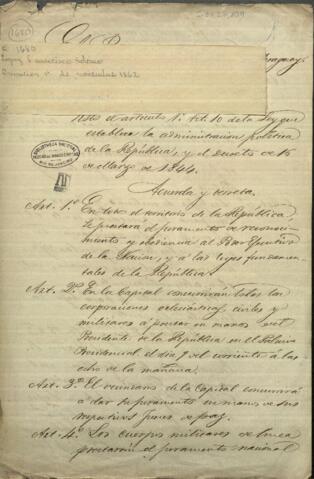 1680
Paraguay.
E 1680
Lopez, Francisco Solano
Asunción, 1º de noviembre 1862
Visto el articulo 1º tit. 10 de la Ley que
establece la administracion politica
de la República, y el decreto de 15
de Marzo de 1844.
Acuerda y decreta.
Art. 1º En todo el territorio de la República
se prestará el juramento de reconoci-
miento y obediencia al Poder Ejecutivo
de la Nacion, y á las leyes fundamen-
tales de la República.
Art. 2º En la Capital concurrirán todas las
corporaciones eclesiasticas, civiles y
militares á prestar en manos del
Presidente de la República en el Palacio
Presidencial el dia del corriente á las
ocho de la mañana.
Art. 3º El vecindario de la Capital concurrirá
á dar su juramento en manos de sus
respectivos Jueces de paz.
Art. 4º Los cuerpos militares de linea
prestarán el juramento nacional